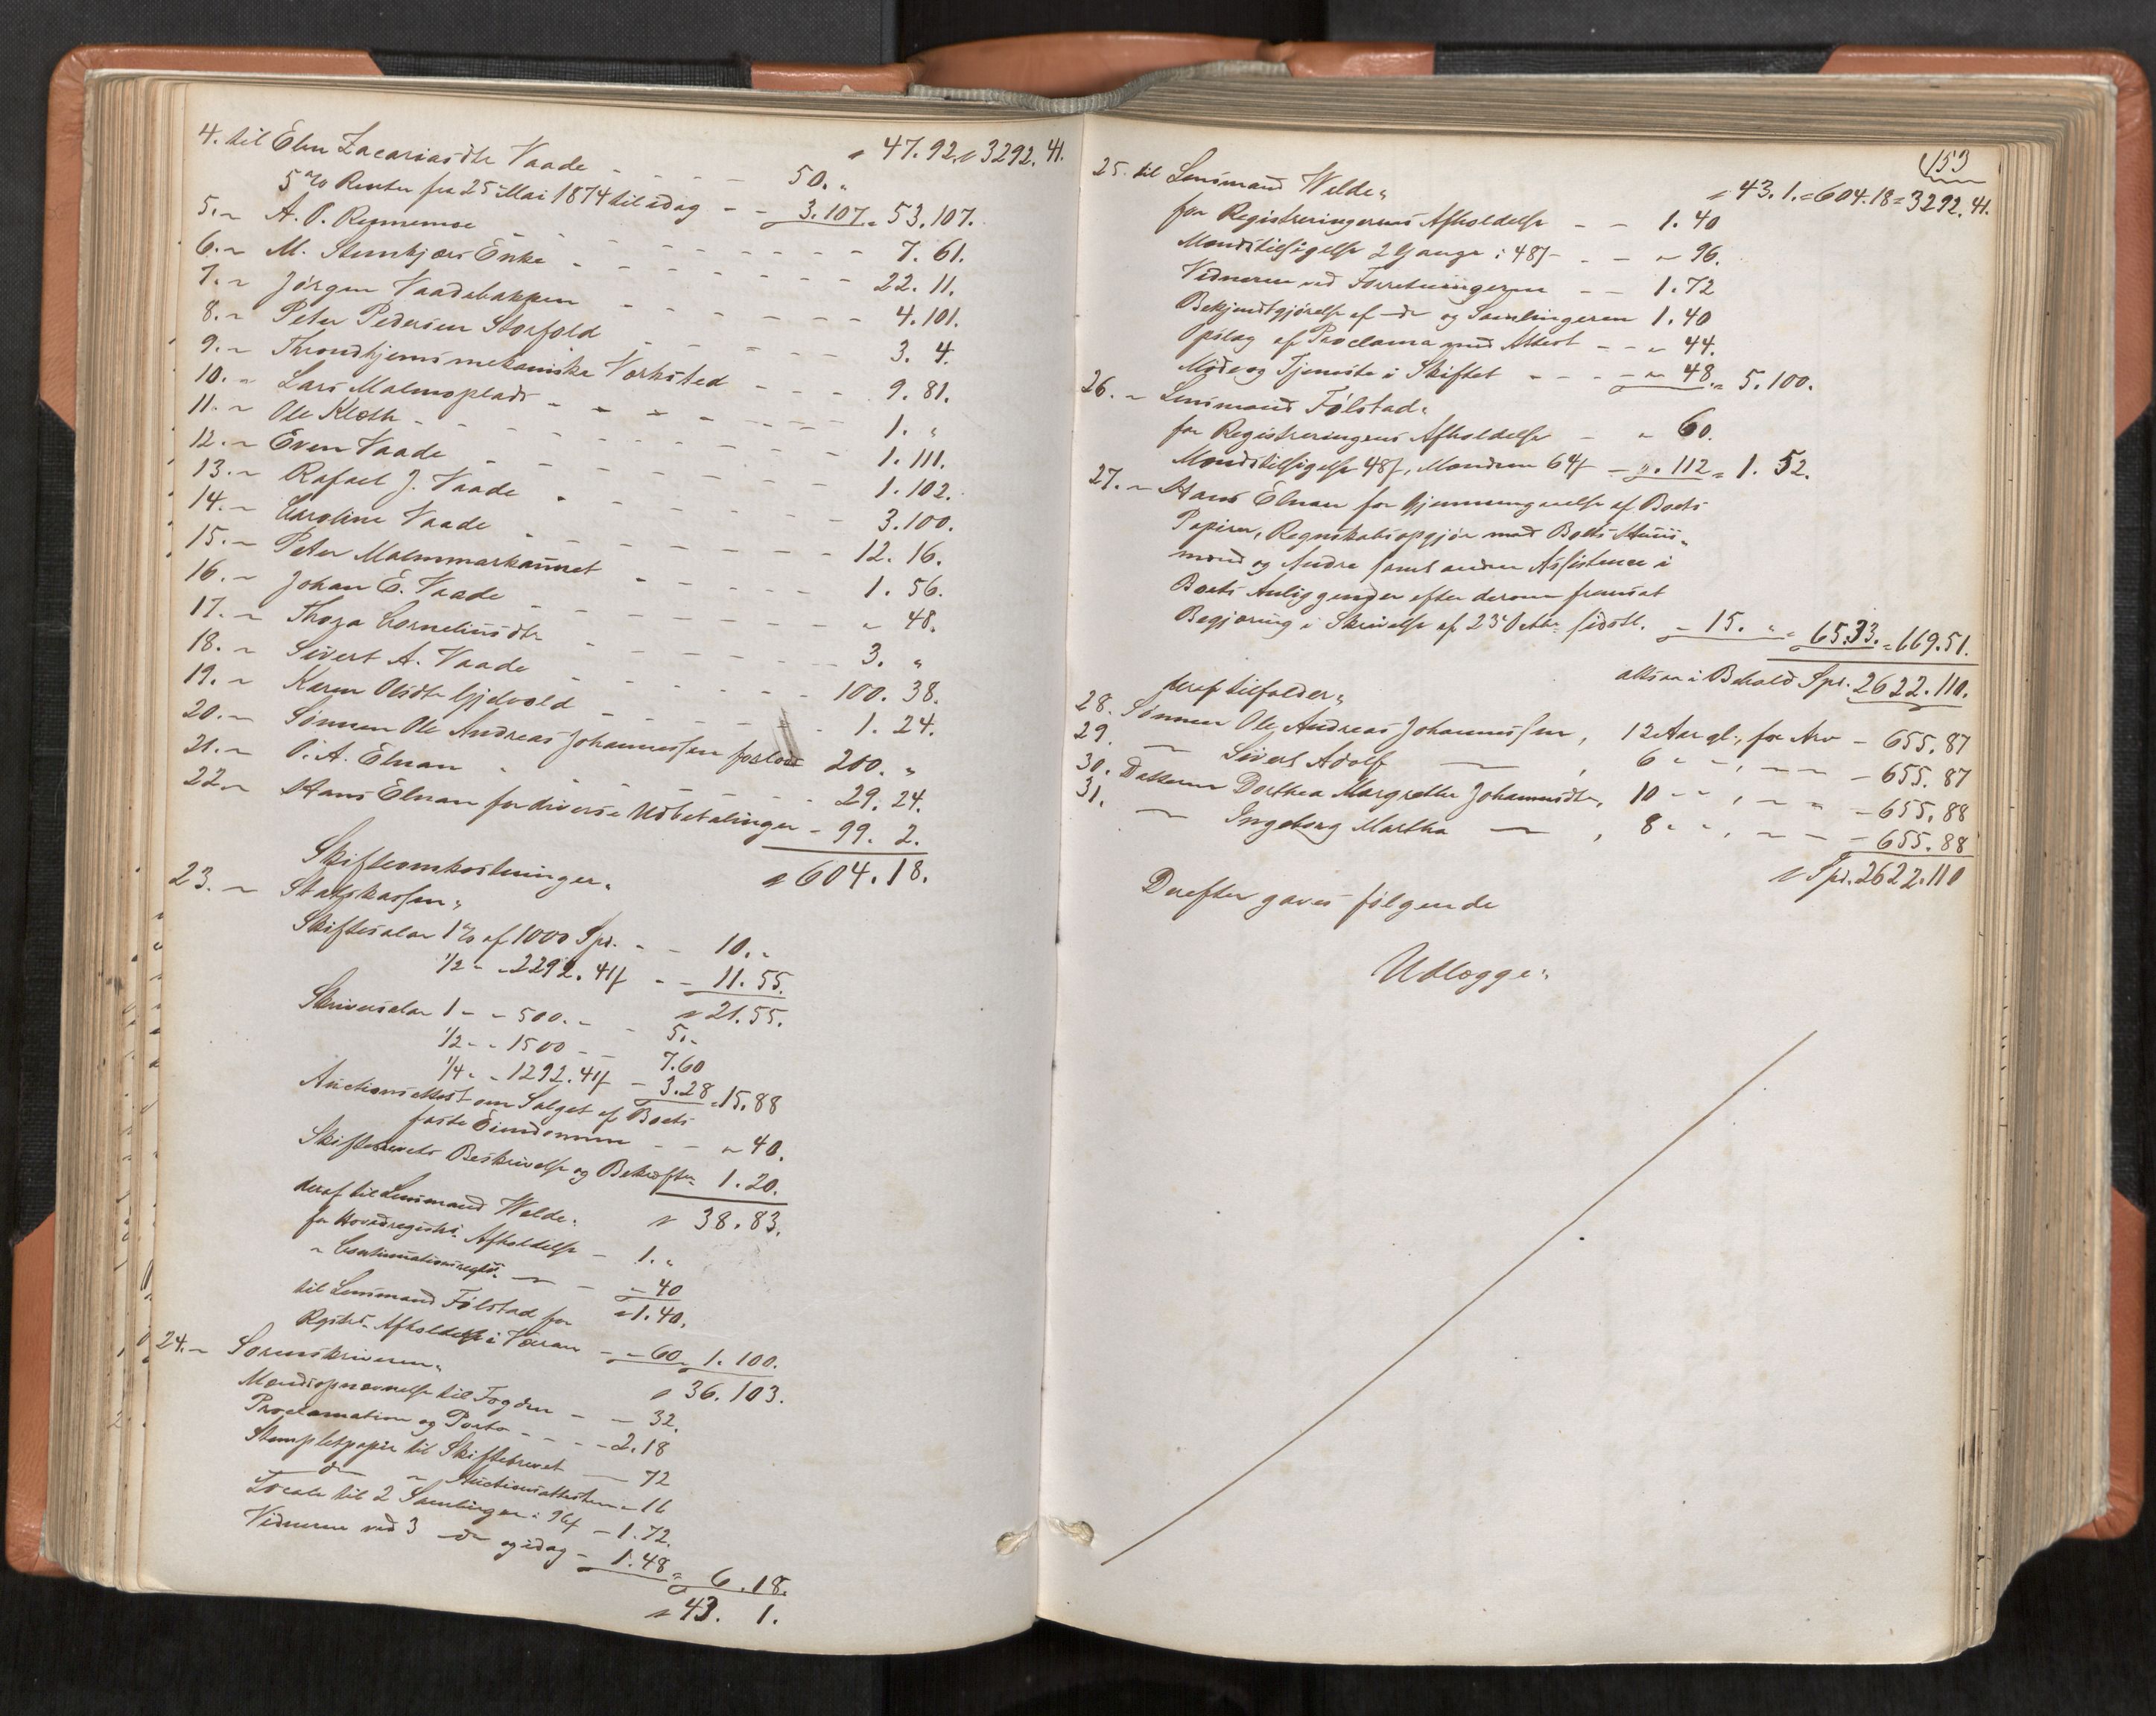 4. til Elen Zacariasdtr Vaade - - - 47.92. 3292.41.
50. "
5 % Renter fra 25 Mai 1874 til idag - - 3.107. 53.107.
5. " A. O. - - - 7. 61.
6. " M. Stenkjærs Enke - - - 22. 11.
7. " Jørgen Vaadebakken - - - 4.101.
8. " Peter Pedersen Storfold - - - 3. 4.
9. " Throndhjems mekaniske Værksted - - - 9. 81.
10. " Lars Malmoplads - - - 1. "
11. " Ole Kleth - - - 1. 111.
12. " Even Vaade - - - 1.102.
13. " Rafael J. Vaade - - - 3.100.
14. " Caroline Vaade - - - 12. 16.
15. " Peter - - - 1. 56.
16. " Johan E. Vaade - - - " 48.
17. " Corneliusdtr - - - 3. "
18. " Sivert A. Vaade - - - 100. 38.
19. " Karen Olsdtr Gjedvold - - - 1. 24.
20. " Sønnen Ole Andreas Johannessen forlods 200. "
21. " O. A. Elnan - - - 29. 24.
22. " Hans Elnan for diverse Udbetalinger - 99. 2.
604.18.
Skifteomkostninger.
23. " Statskassen,
Skiftesalær 1 % af 1000 Spd. - - 10. "
1/2 " " 2292. 41 - - 11. 55.
21.55.
Skriversalær 1 - - 500. - - 5. "
1/2 - - 1500 - - 7.60
1/4 - - 1292. 41 - 3.28 = 15.88
Auctionsattest om Salget af Boets
faste Eiendomme - - " 40.
Skiftebrevets Beskrivelse og Bekræftn. 1. 20.
38. 83.
deraf til Lensmand Welde:
for Hovedregistr. Afholdelse - 1. "
" Continuationsregistr. - - " 40
1.40.
til Lensmand Følstad for
Registr. Afholdelse i Værran - " 60. 1. 100.
36. 103.
24. " Sorenskriveren.
Mandsopnævnelse til Fogden - - 32.
Proclamation og Porto - - - 2.18
Stempletpapir til Skiftebrevet - 72
do " Auctionsattesten " 16
Locale til 2 Samlinger - 1.72.
Vidnerne ved 3 do og idag - 1.48 = 6.18.
43. 1.
153
25. til Lensmand Welde. 43.1. = 604.18 = 3292. 41.
for Registreringernes Afholdelse - - 1. 40
Mandstilsigelse 2 Gange : 48 - - " 96.
Vidnerne ved Forretningerne - - 1. 72
Bekjendtgjørelse af do og Samlingerne 1. 40
Opslag af Proclama med Attest - - " 44.
Møde og Tjeneste i Skiftet - - - " 48 = 5.100.
26. " Lensmand Følstad.
for Registreringens Afholdelse - " 60.
Mandstilsigelse 48, Mændene 64 - ". 112 = 1. 52.
27. " Hans Elnan for Gjennemgaaelse af Boets
Papirer, Regnskabsopgjør med Boets
mænd og Andre samt anden Assistence i
Boets Anliggender efter derom fremsat
Begjæring i Skrivelse af 23 Octbr. sidstl. - 15. " = 65.33. = 669.51.
altsaa i Behold Spd. 2622.110.
deraf tilfalder,
28. Sønnen Ole Andreas Johannessen, 12 Aar gl., for Arv - 655.87
29. - Sivert Adolf - , 6 - - , - - - 655. 87
30. Datteren Dorthea Margrethe Johannesdtr, 10 - - , - - - 655. 88
31. - Ingeborg Martha - , 8 - - , - - - 655. 88
Spd. 2622.110
Derefter gaves følgende
Udlægge: